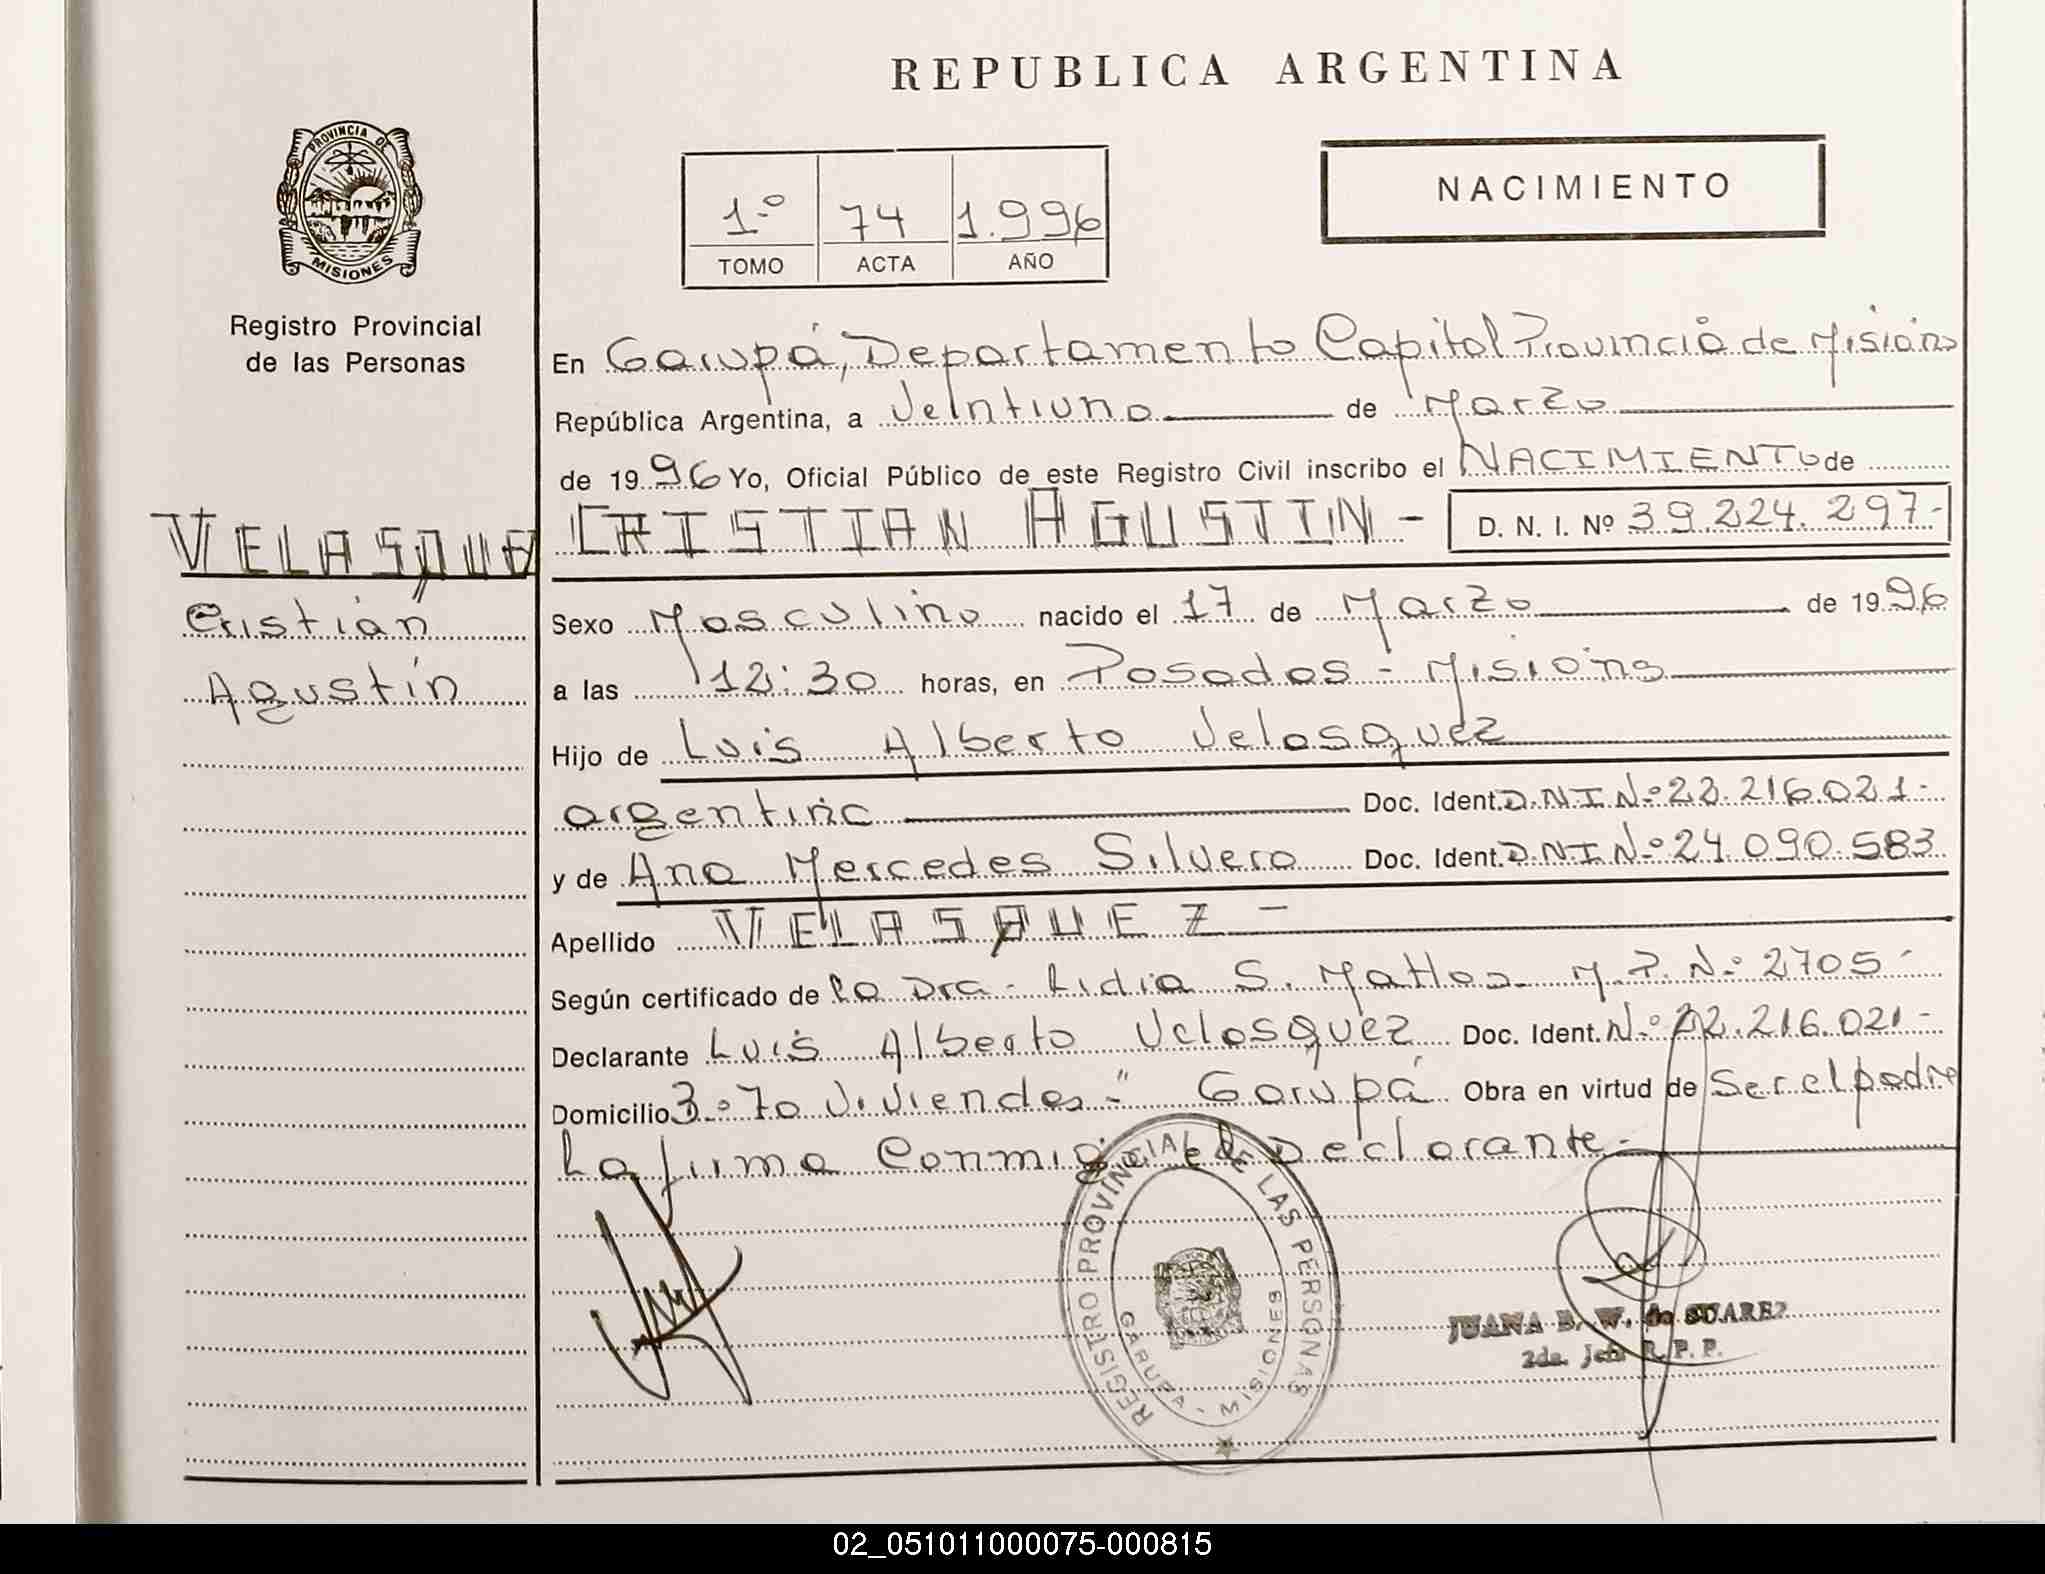 REPUBLICA ARGENTINA
PROVINCIA DE
MISIONES
Registro Provincial
de las Personas
1.º 74 1.996
TOMO ACTA AÑO
NACIMIENTO
En Garupá, Departamento Capital Provincia de Misions
República Argentina, a Veintiuno de Marzo
de 1996 Yo, Oficial Público de este Registro Civil inscribo el NACIMIENTO de
VELASQUE
Cristian
Agustín
CRISTIAN AGUSTIN - D. N. I. Nº 39.224.297-
Sexo Masculino nacido el 17 de Marzo de 1996
a las 12:30 horas, en Posadas - Misions
Hijo de Luis Alberto Velasquez
argentina Doc. Ident. D.N.I N.º 22.216.021-
y de Ana Mercedes Silvero Doc. Ident. D.N.I N.º 24.090.583
Apellido VELASQUEZ -
Según certificado de la Dra. Lidia S. M.P. N.º 2705-
Declarante Luis Alberto Velasquez Doc. Ident. N.º 22.216.021-
Domicilio 70 Viviendas - Garupá Obra en virtud de Ser el padre
La firma Conmigo el Declarante.-
REGISTRO PROVINCIAL DE LAS PERSONAS
GARUPA - MISIONES
JUANA B. W. de SUAREZ
2da. Jefa R. P. P.
02_051011000075-000815